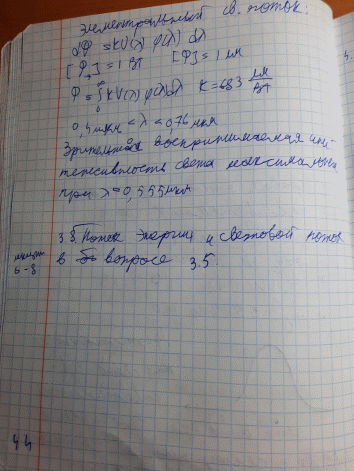 элементральный св. поток:
dФ = kV(λ) φ(λ) dλ
[Фэ] = 1 Вт [Ф] = 1 лм
Ф = ∫₀^∞ kV(λ) φ(λ)dλ K = 683 лм/Вт
0,4 мкм < λ < 0,76 мкм
Зрительная воспринимаемая ин-
тенсивность света максимальна
при λ = 0,555 мкм
3.8 Поток энергии и световой поток
в вопросе 3.5.
6-8
44